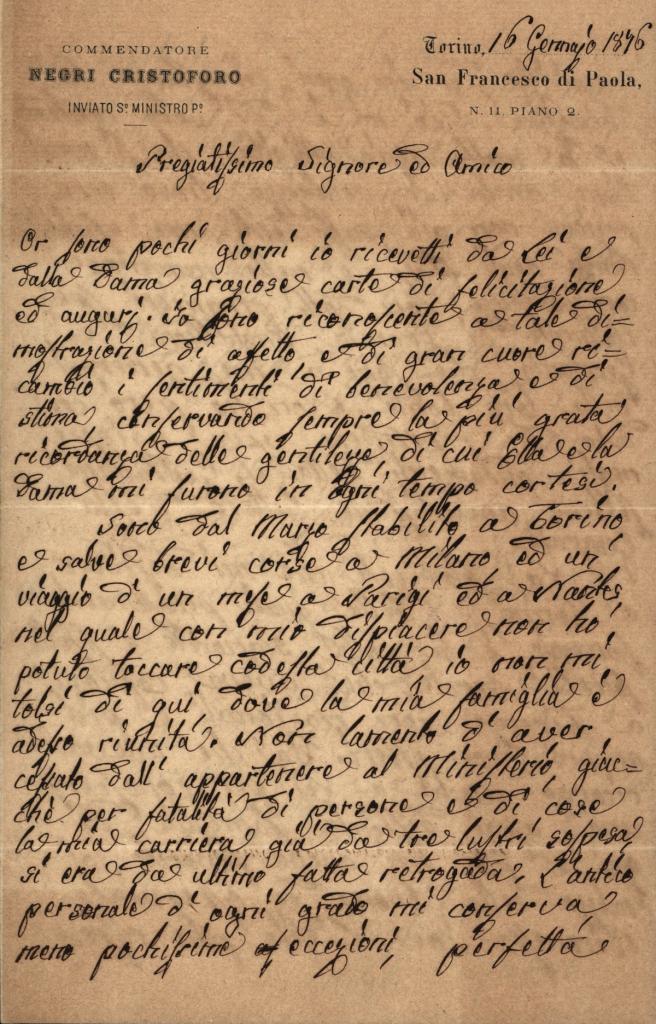 COMMENDATORE
NEGRI CRISTOFORO
INVIATO Sº MINISTRO Pº
Torino, 16 Gennajo 1876
San Francesco di Paola,
N. 11. PIANO 2.
Pregiatissimo Signore ed Amico
Or sono pochi giorni io ricevetti da Lei e
dalla Dama graziose carte di felicitazione
ed augurj. Io sono riconoscente a tale di=
mostrazione di affetto, e di gran cuore ri=
cambio i sentimenti di benevolenza e di
stima, conservando sempre la più grata
ricordanza delle gentilezze, di cui Ella e la
Dama mi furono in ogni tempo cortesi.
Sono dal Marzo stabilito a Torino,
e salve brevi corse a Milano, ed un
viaggio d' un mese a Parigi ed a Nantes,
nel quale con mio dispiacere non hó
potuto toccare codesta città, io non mi
tolsi di qui dove la mia famiglia é
adesso riunita. Non lamento d' aver
cessato dall' appartenere al Ministerio, giac=
chè per fatalità di persone e di cose
la mia carriera già da tre lustri sospesa,
si era da ultimo fatta retrogada. L'antico
personale d' ogni grado mi conserva,
meno pochissime eccezioni, perfetta